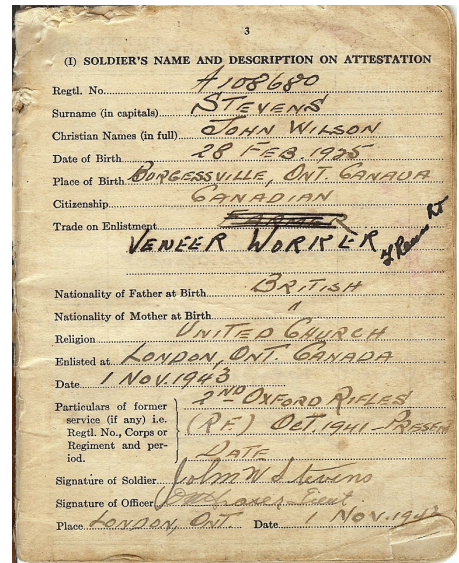 3
(I) SOLDIER'S NAME AND DESCRIPTION ON ATTESTATION
Regtl. No. A108680
Surname (in capitals) STEVENS
Christian Names (in full) JOHN WILSON
Date of Birth 28 FEB. 1925
Place of Birth BURGESSVILLE, ONT. CANADA
Citizenship CANADIAN
Trade on Enlistment FARMER
VENEER WORKER
Nationality of Father at Birth BRITISH
Nationality of Mother at Birth "
Religion UNITED CHURCH
Enlisted at LONDON, ONT. CANADA
Date 1 NOV. 1943
Particulars of former service (if any) i.e. Regtl. No., Corps or Regiment and period.
2ND OXFORD RIFLES
(RF) OCT. 1941 - PRESENT
DATE
Signature of Soldier John W Stevens
Signature of Officer Lieut.
Place LONDON, ONT. Date 1 NOV. 1943